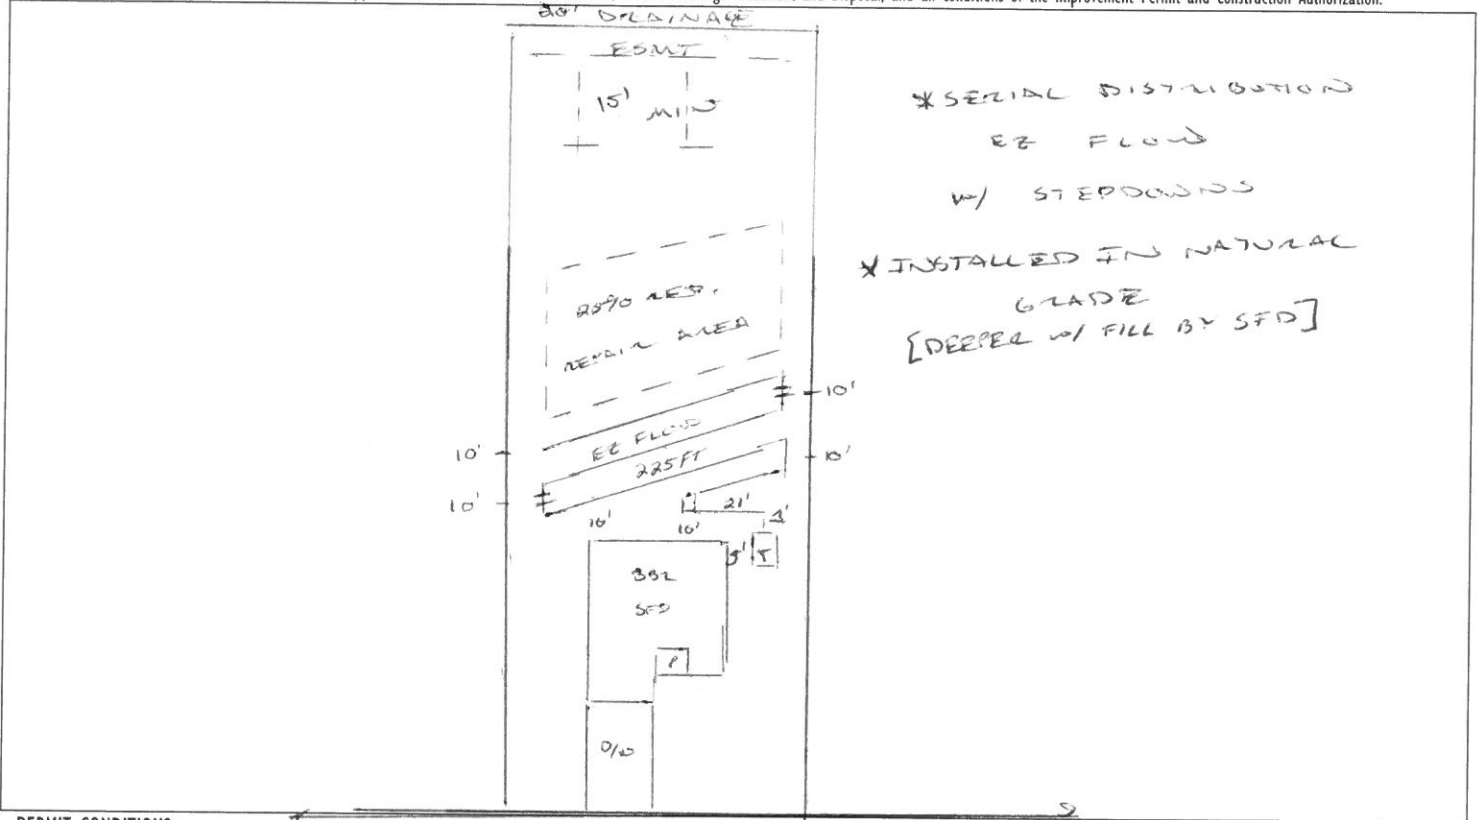 and all conditions of the Improvement Permit and Construction Authorization.
20' DRAINAGE
ESMT
15' MIN
*SERIAL DISTRIBUTION
EZ FLOW
w/ STEPDOWNS
*INSTALLED IN NATURAL
GRADE
[DEEPER w/ FILL BY SFD]
25% RED.
REPAIR AREA
10'
EZ FLOW
10'
225FT
10'
10'
21'
16'
16'
5'
T
SFD
P
D/W
PERMIT CONDITIONS